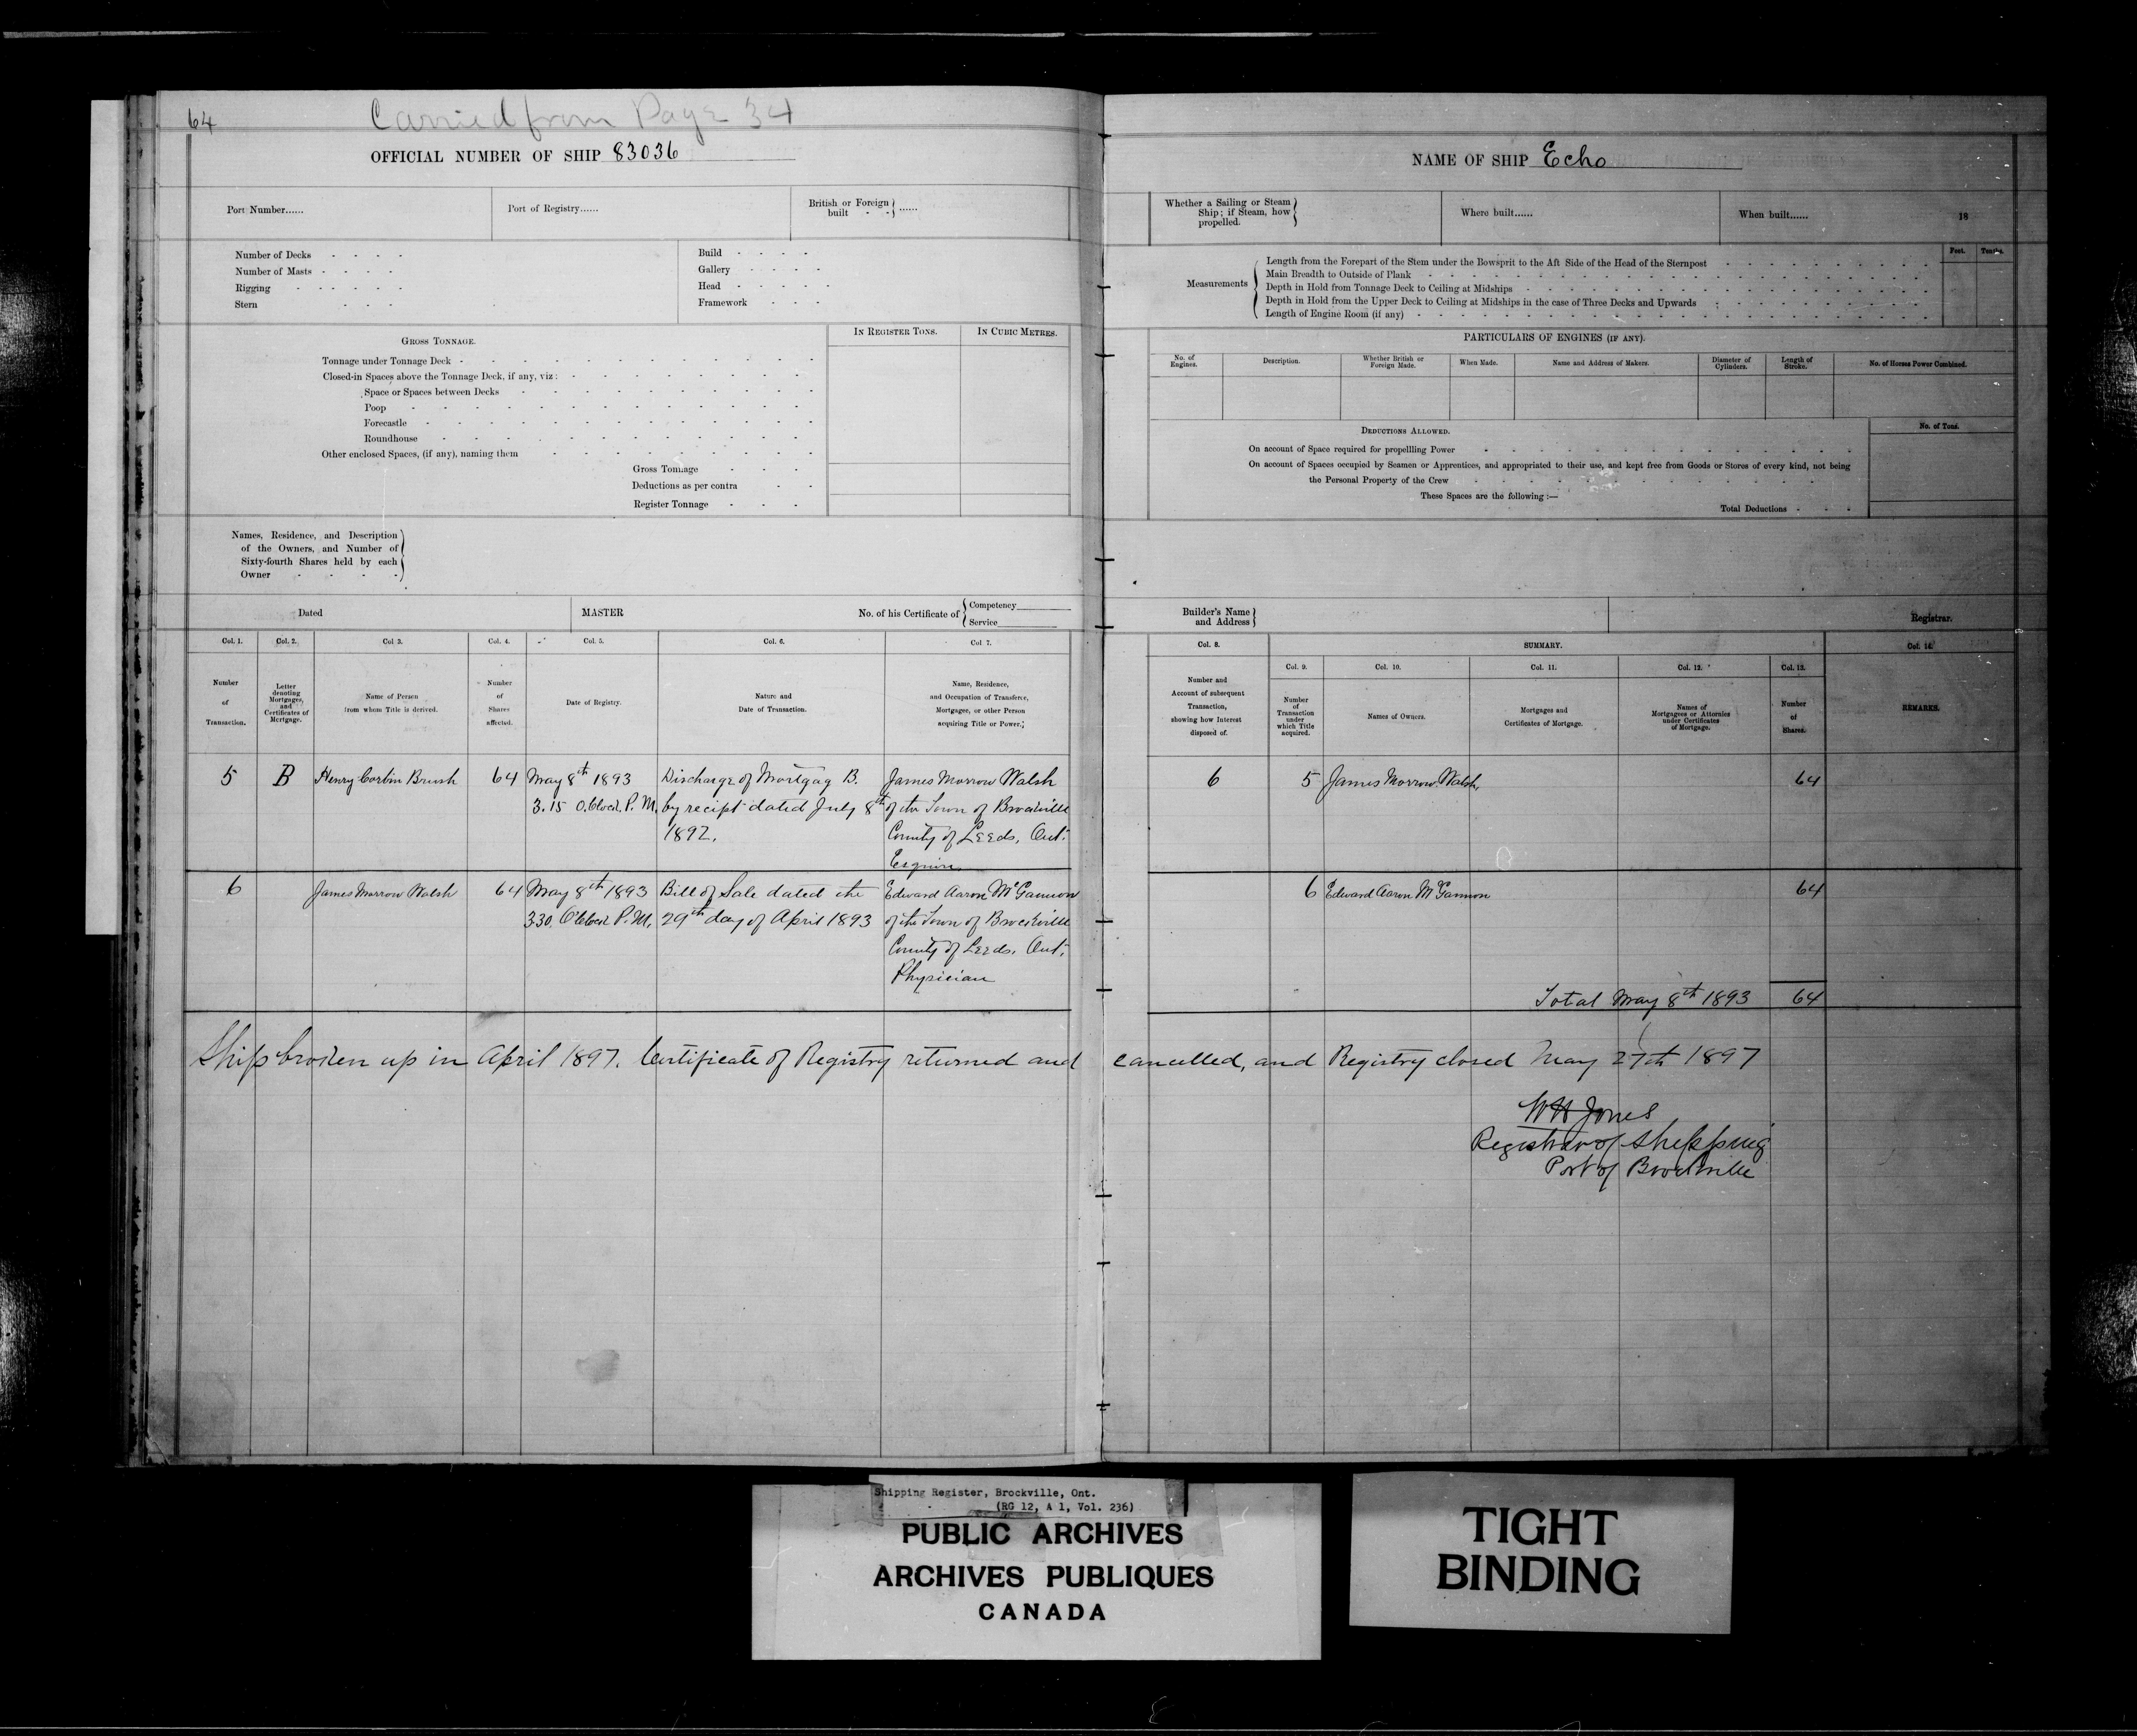 64
Carried from Page 34
OFFICIAL NUMBER OF SHIP 83036
Port Number......
Port of Registry......
British or Foreign built - - } ......
Number of Decks - - - -
Number of Masts - - - -
Rigging - - - - -
Stern - - - -
Build - - - -
Gallery - - - -
Head - - - -
Framework - - -
GROSS TONNAGE.
IN REGISTER TONS.
IN CUBIC METRES.
Tonnage under Tonnage Deck -
Closed-in Spaces above the Tonnage Deck, if any, viz:
Space or Spaces between Decks
Poop
Forecastle
Roundhouse
Other enclosed Spaces, (if any), naming them
Gross Tonnage
Deductions as per contra
Register Tonnage
Names, Residence, and Description
of the Owners, and Number of
Sixty-fourth Shares held by each
Owner - - - -
Dated
MASTER
No. of his Certificate of { Competency
Service
Col. 1.
Col. 2.
Col. 3.
Col. 4.
Col. 5.
Col. 6.
Col. 7.
Number
of
Transaction.
Letter
denoting
Mortgages,
and
Certificates of
Mortgage.
Name of Person
from whom Title is derived.
Number
of
Shares
affected.
Date of Registry.
Nature and
Date of Transaction.
Name, Residence,
and Occupation of Transferee,
Mortgagee, or other Person
acquiring Title or Power.
5 B Henry Corbin Brush 64 May 8th 1893 Discharge of Mortgag B. James Morrow Walsh
3.15 O.Clock P.M. by recipt dated July 8th of the Town of Brockville
1892. County of Leeds, Ont.
Esquire
6 James Morrow Walsh 64 May 8th 1893 Bill of Sale dated the Edward Aaron McGannon
3.30 O'Clock P.M. 29th day of April 1893 of the Town of Brockville
County of Leeds. Ont.
Physician
Ship broken up in April 1897. Certificate of Registry returned and
NAME OF SHIP Echo
Whether a Sailing or Steam
Ship; if Steam, how
propelled.
Where built......
When built......
18
Measurements
Feet.
Tenths.
Length from the Forepart of the Stem under the Bowsprit to the Aft Side of the Head of the Sternpost
Main Breadth to Outside of Plank
Depth in Hold from Tonnage Deck to Ceiling at Midships
Depth in Hold from the Upper Deck to Ceiling at Midships in the case of Three Decks and Upwards
Length of Engine Room (if any)
PARTICULARS OF ENGINES (IF ANY).
No. of
Engines.
Description.
Whether British or
Foreign Made.
When Made.
Name and Address of Makers.
Diameter of
Cylinders.
Length of
Stroke.
No. of Horses Power Combined.
DEDUCTIONS ALLOWED.
No. of Tons.
On account of Space required for propellling Power
On account of Spaces occupied by Seamen or Apprentices, and appropriated to their use, and kept free from Goods or Stores of every kind, not being
the Personal Property of the Crew
These Spaces are the following :—
Total Deductions
Builder's Name
and Address
Registrar.
Col. 8.
SUMMARY.
Col. 14.
Col. 9.
Col. 10.
Col. 11.
Col. 12.
Col. 13.
Number and
Account of subsequent
Transaction,
showing how Interest
disposed of.
Number
of
Transaction
under
which Title
acquired.
Names of Owners.
Mortgages and
Certificates of Mortgage.
Names of
Mortgagees or Attornies
under Certificates
of Mortgage.
Number
of
Shares.
REMARKS.
6 5 James Morrow Walsh, 64
6 Edward Aaron McGannon 64
Total May 8th 1893 64
cancelled, and Registry closed May 27th 1897
WH Jones
Registrar of Shipping
Port of Brockville
Shipping Register, Brockville, Ont.
(RG 12, A 1, Vol. 236)
PUBLIC ARCHIVES
ARCHIVES PUBLIQUES
CANADA
TIGHT
BINDING